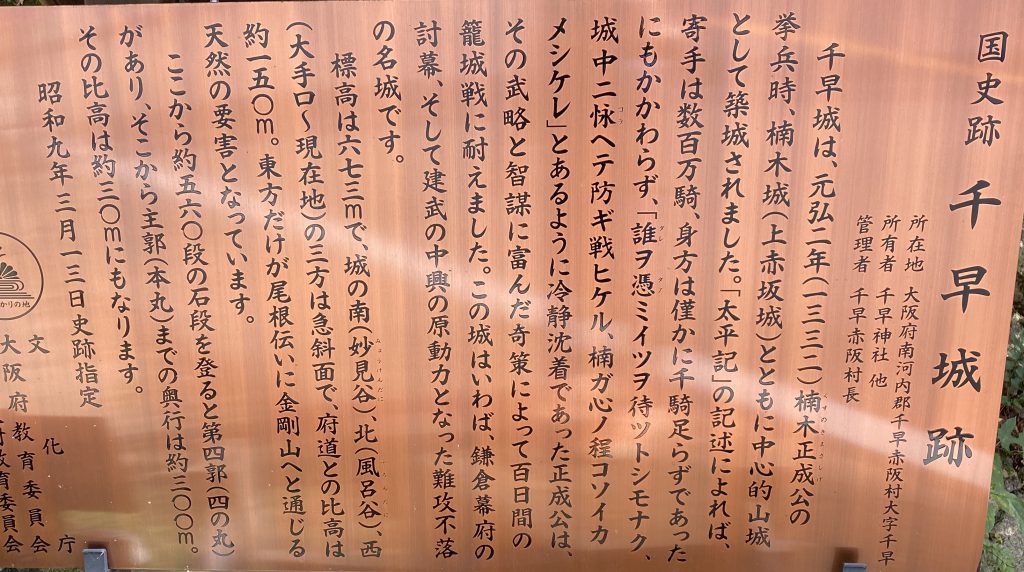 国史跡 千早城跡
所在地 大阪府南河内郡千早赤阪村大字千早
所有者 千早神社 他
管理者 千早赤阪村長
千早城は、元弘二年(一三三二)楠木正成公の
挙兵時、楠木城(上赤坂城)とともに中心的山城
として築城されました。「太平記」の記述によれば、
寄手は数百万騎、身方は僅かに千騎足らずであった
にもかかわらず、「誰ヲ憑ミイツヲ待ツトシモナク、
城中ニ怺ヘテ防ギ戦ヒケル、楠ガ心ノ程コソイカ
メシケレ」とあるように冷静沈着であった正成公は、
その武略と智謀に富んだ奇策によって百日間の
籠城戦に耐えました。この城はいわば、鎌倉幕府の
討幕、そして建武の中興の原動力となった難攻不落
の名城です。
標高は六七三mで、城の南(妙見谷)、北(風呂谷)、西
(大手口～現在地)の三方は急斜面で、府道との比高は
約一五〇m。東方だけが尾根伝いに金剛山へと通じる
天然の要害となっています。
ここから約五六〇段の石段を登ると第四郭(四の丸)
があり、そこから主郭(本丸)までの奥行は約三〇〇m。
その比高は約三〇mにもなります。
昭和九年三月一三日史跡指定
文化庁
大阪府教育委員会
教育委員会
かりの地